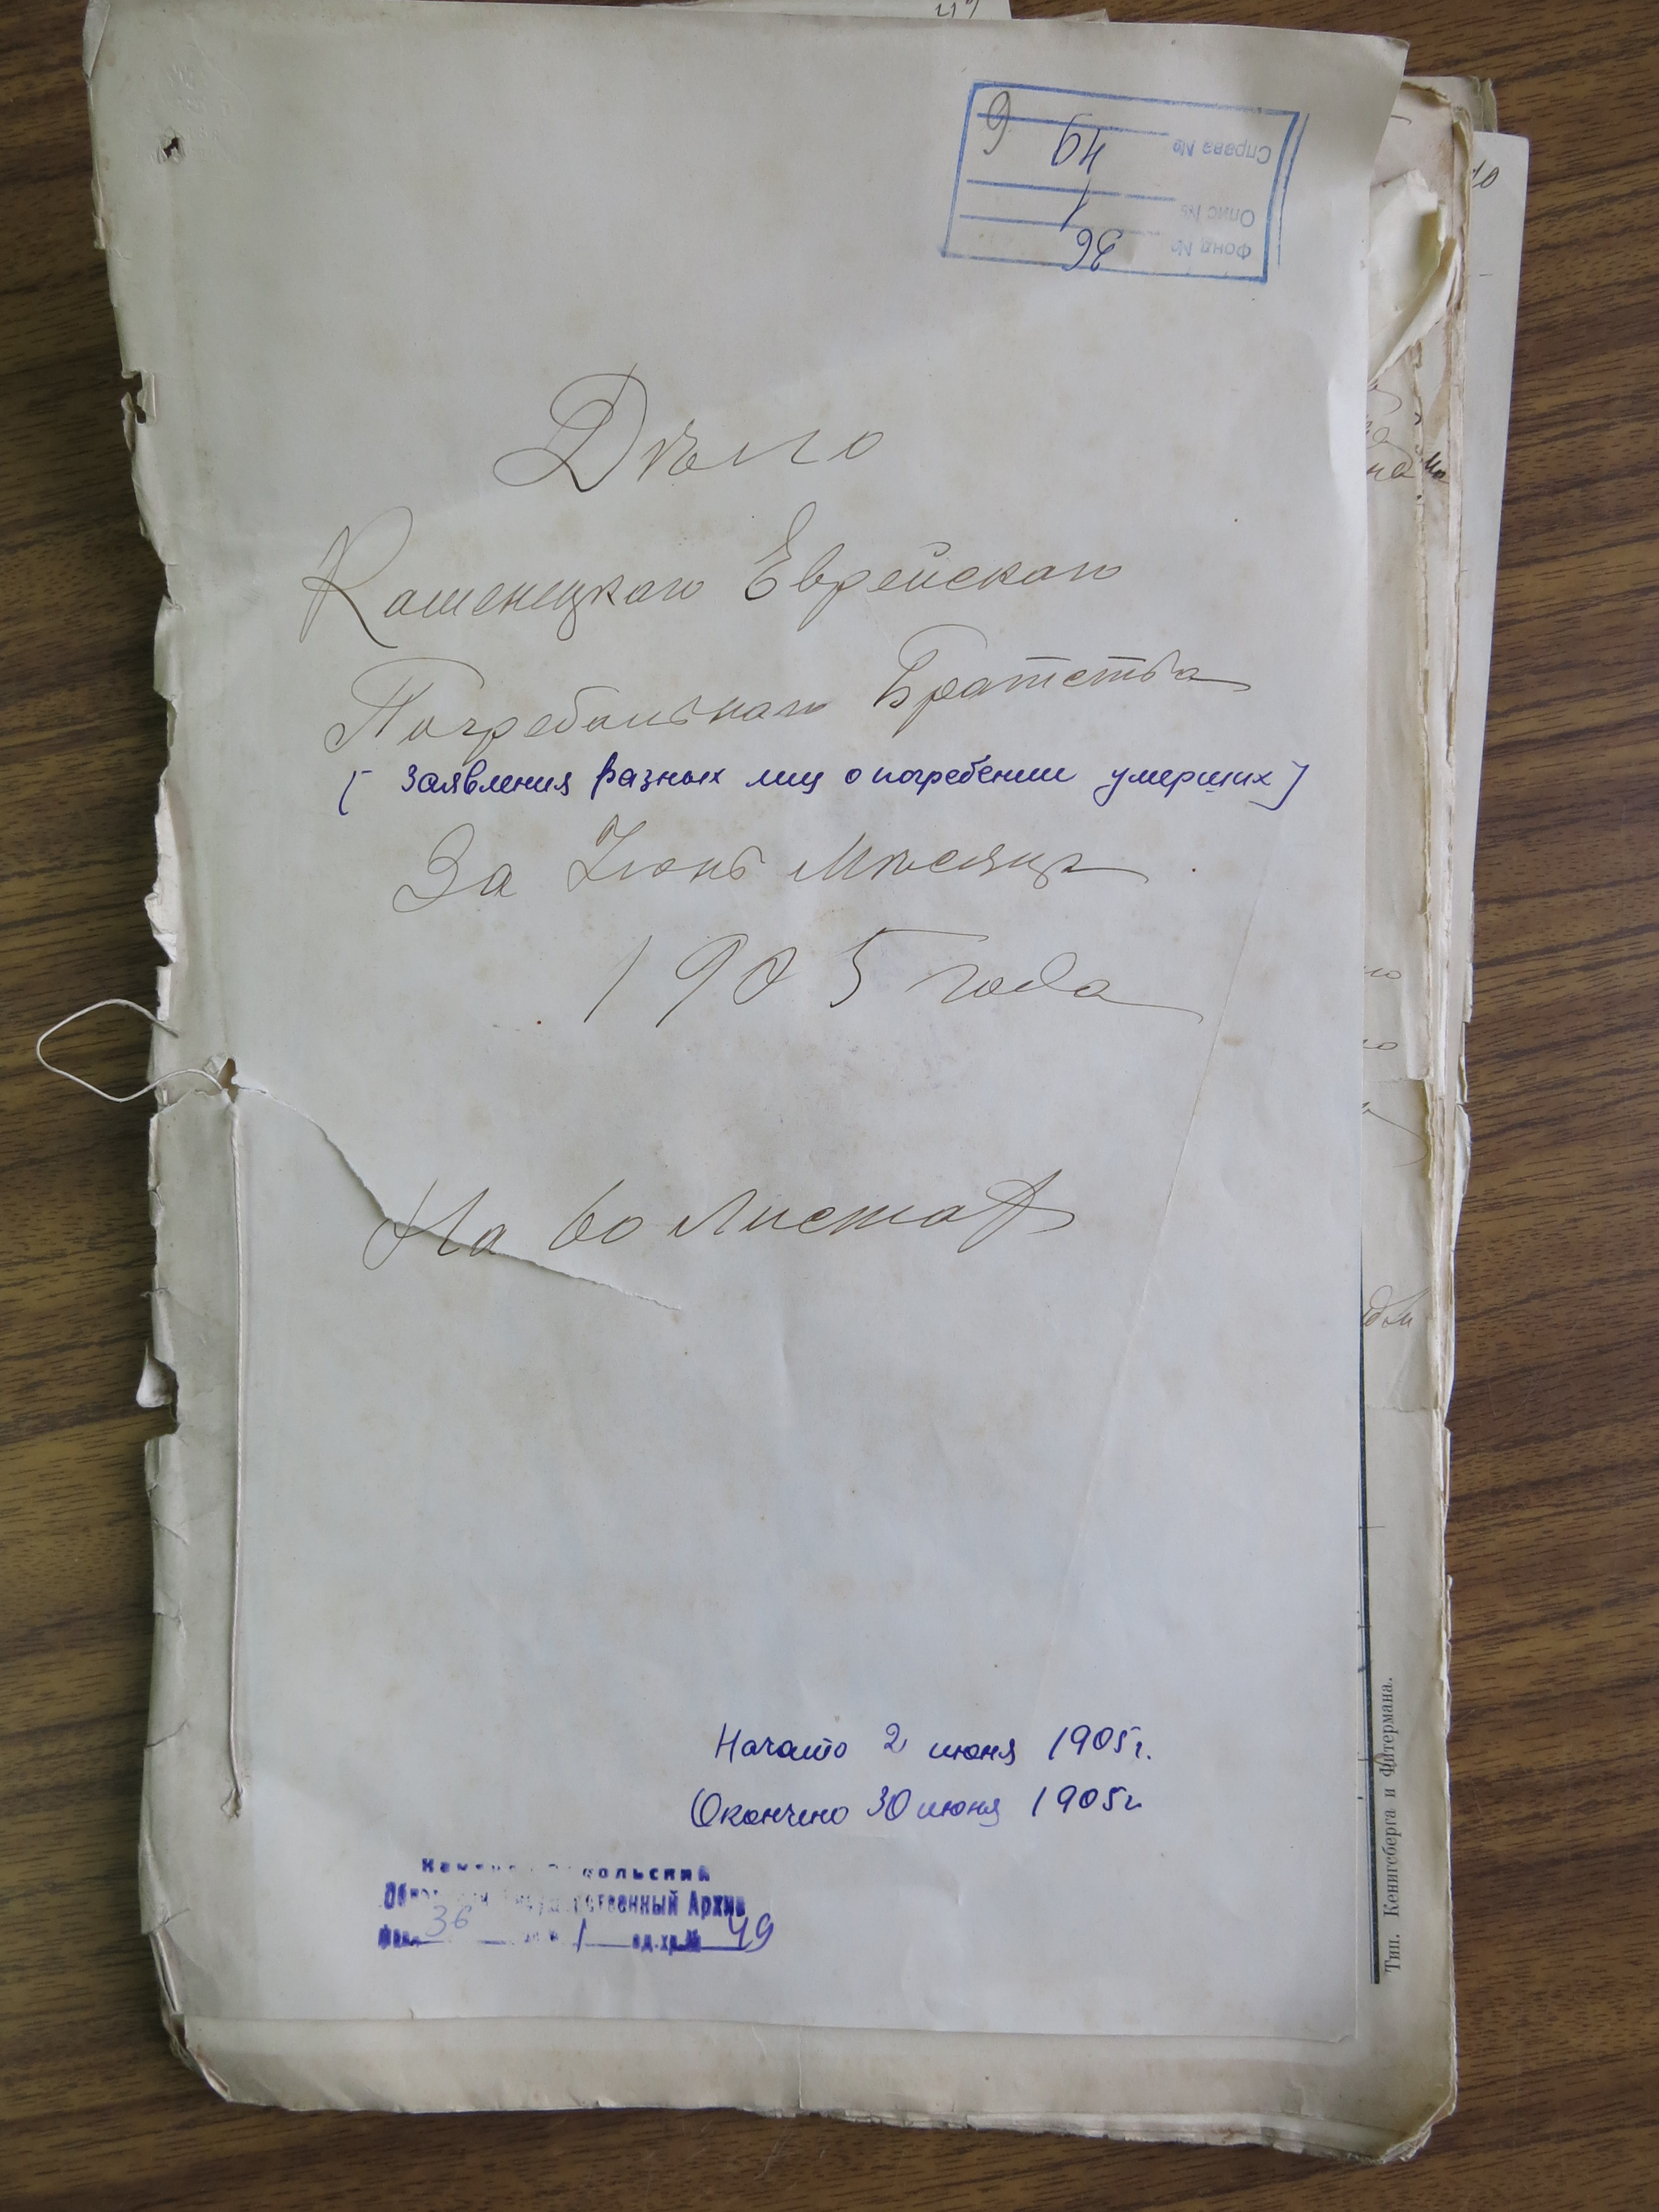 Справа № 49
Опис № 1
Фонд № 36
Дѣло
Каменецкаго Еврейскаго
Погребальнаго Братства
[Заявления разных лиц о погребении умерших]
За Іюнь Мѣсяцъ
1905 года
На 60 Листахъ
Начато 2 июня 1905 г.
Окончено 30 июня 1905 г
ольский
ственный Архив
36 1 ед.хр.№ 49
Тип. Кенигсберга и Фитермана.